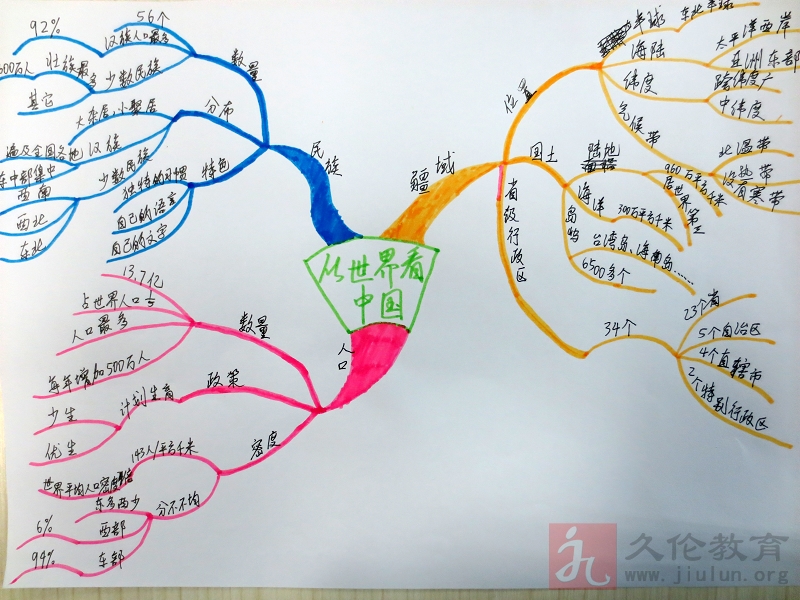 从世界看
中国
疆域
位置
半球
东北半球
海陆
太平洋西岸
亚洲东部
纬度
跨纬度广
中纬度
气候带
北温带
没热带
有寒带
国土
陆地
960万平方千米
居世界第三
海洋
300万平方千米
岛屿
台湾岛、海南岛……
6500多个
省级行政区
34个
23个省
5个自治区
4个直辖市
2个特别行政区
民族
数量
56个
汉族人口最多
92%
少数民族
壮族最多
00万人
其它
分布
大杂居,小聚居
汉族
遍及全国各地
东中部集中
少数民族
西南
西北
东北
特色
独特的习惯
自己的语言
自己的文字
人口
数量
13.7亿
占世界人口1/5
人口最多
每年增加500万人
政策
计划生育
少生
优生
密度
143人/平方千米
世界平均人口密度
分布不均
东多西少
西部
6%
东部
94%
久伦教育
www.jiulun.org